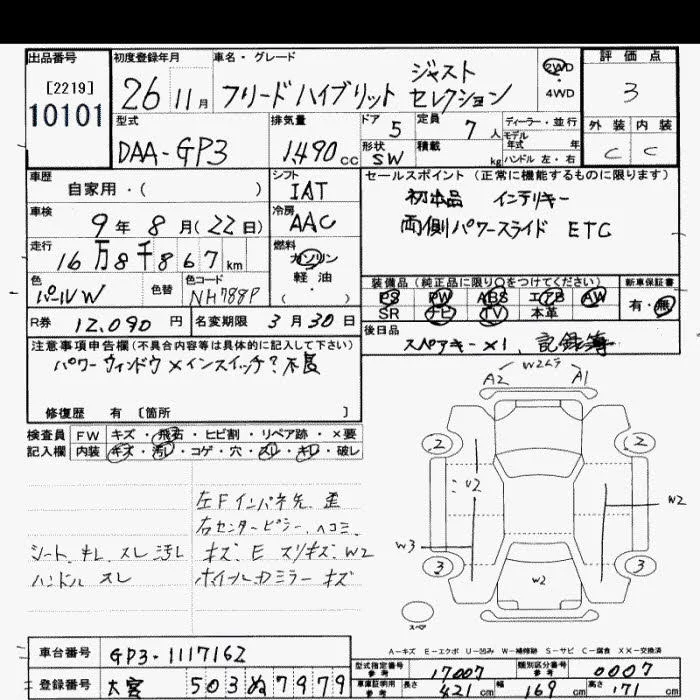 出品番号
[2219]
10101
初度登録年月
26 11月
車名・グレード
フリードハイブリット ジャスト
セレクション
2WD
4WD
評価点
3
外装 内装
C C
型式
DAA-GP3
排気量
1,490cc
ドア 5
形状 SW
定員 7人
積載 kg
ディーラー・並行
モデル
年式 年
ハンドル 左・右
車歴
自家用・( )
シフト
IAT
セールスポイント (正常に機能するものに限ります)
初本品 インテリキー
両側パワースライド ETC
車検
9年 8月(22日)
冷房
AAC
走行
16万8千867km
燃料
ガソリン
軽油
・( )
色
パールW
色替
色コード
NH788P
装備品(純正品に限り○をつけてください)
PS PW ABS エアB AW
SR ナビ TV 本革
新車保証書
有・無
R券 12,090円
名変期限 3月30日
後日品
スペアキー×1, 記録簿
注意事項申告欄(不具合内容等は具体的に記入して下さい)
パワーウィンドウ メインスイッチ?不良
修復歴 有 [箇所 ]
検査員 FW キズ・飛石・ヒビ割・リペア跡・×要
記入欄 内装 キズ・汚レ・コゲ・穴・スレ・キレ・破レ
左Fインパネ先 歪
右センターピラー、ヘコミ
シート キレ スレ 汚レ
キズ、E スリキズ、W2
ハンドル スレ
ホイールカミラー キズ
W2ムラ
A2 A1
2 2
W2 W2
W3
3 3
W2
スペア
A-キズ E-エクボ U-凹み W-補修跡 S-サビ C-腐食 XX-交換済
車台番号 GP3-1117162
登録番号 大宮 503ぬ7979
型式指定番号
参考
17007
類別区分番号
参考
0007
車庫証明用
参考
長さ 421cm 幅 169cm 高さ 71cm